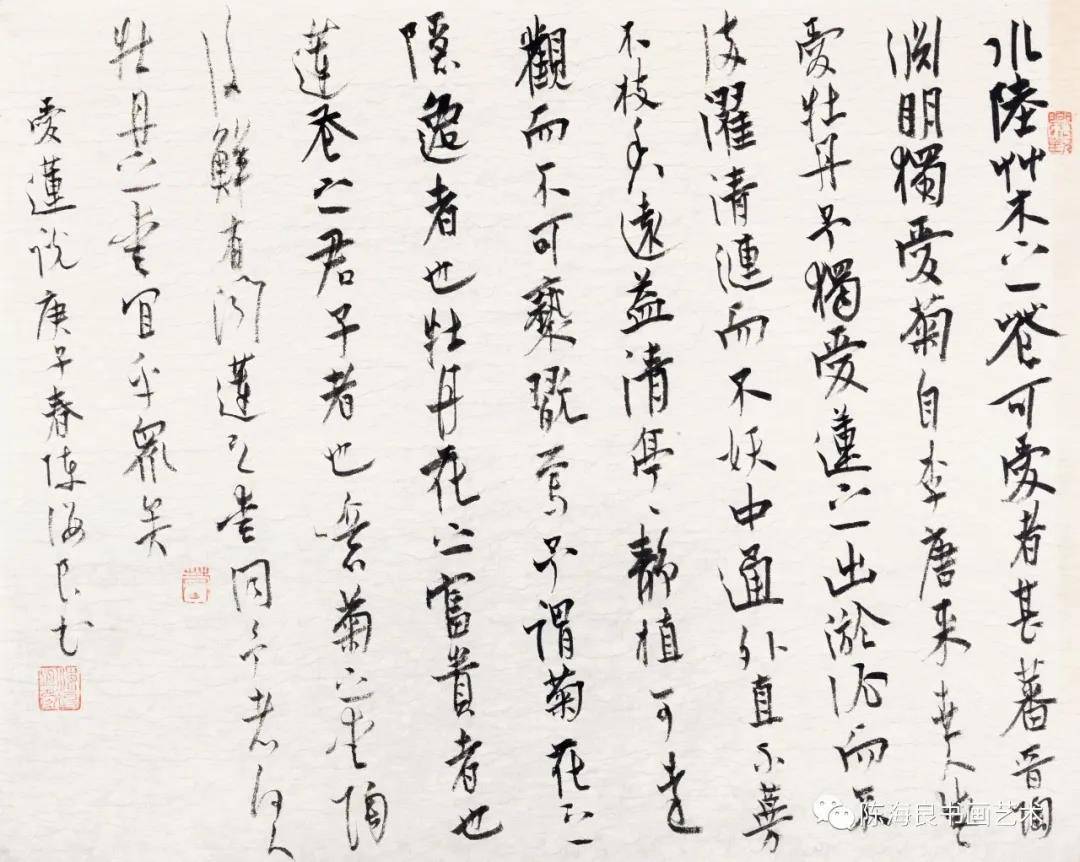 水陸艸木之花可愛者甚蕃晉陶
淵明獨愛菊自李唐來世人甚
愛牡丹予獨愛蓮之出淤泥而不
染濯清漣而不妖中通外直不蔓
不枝香遠益清亭、静植可遠
觀而不可褻翫焉予謂菊花之
隱逸者也牡丹花之富貴者也
蓮花之君子者也噫菊之愛陶
後鮮有聞蓮之愛同予者何人
牡丹之愛宜乎衆矣
愛蓮说庚子春陳海良书
陈海良书画艺术